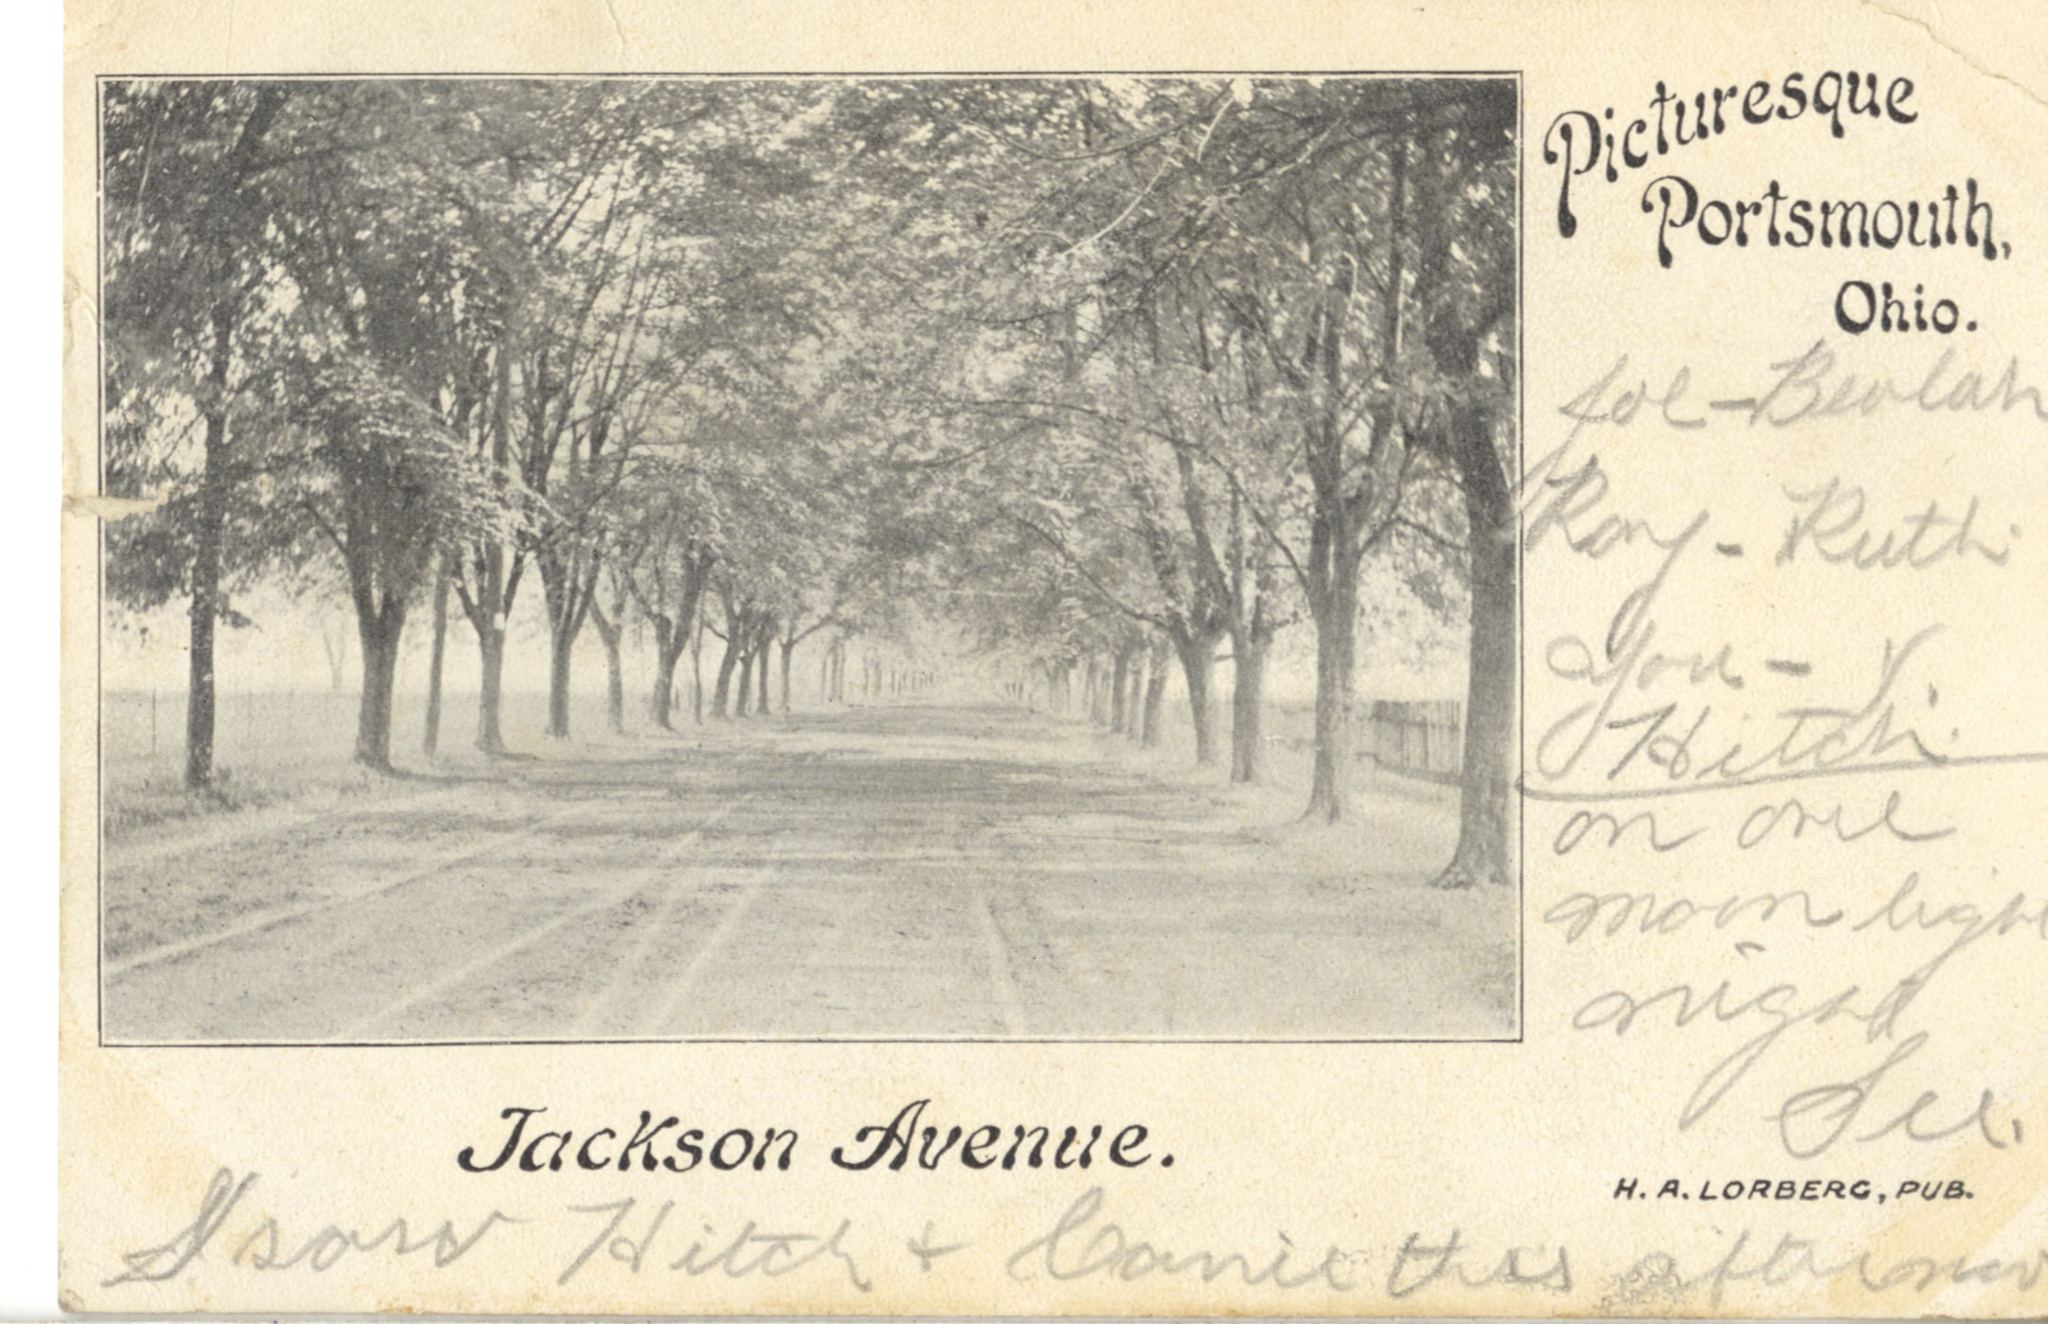 Picturesque
Portsmouth,
Ohio.
Joe - Beulah
Roy - Ruth
You - &
Hitch.
on one
moon light
night
Jackson Avenue.
H. A. LORBERG, PUB.
I saw Hitch + this